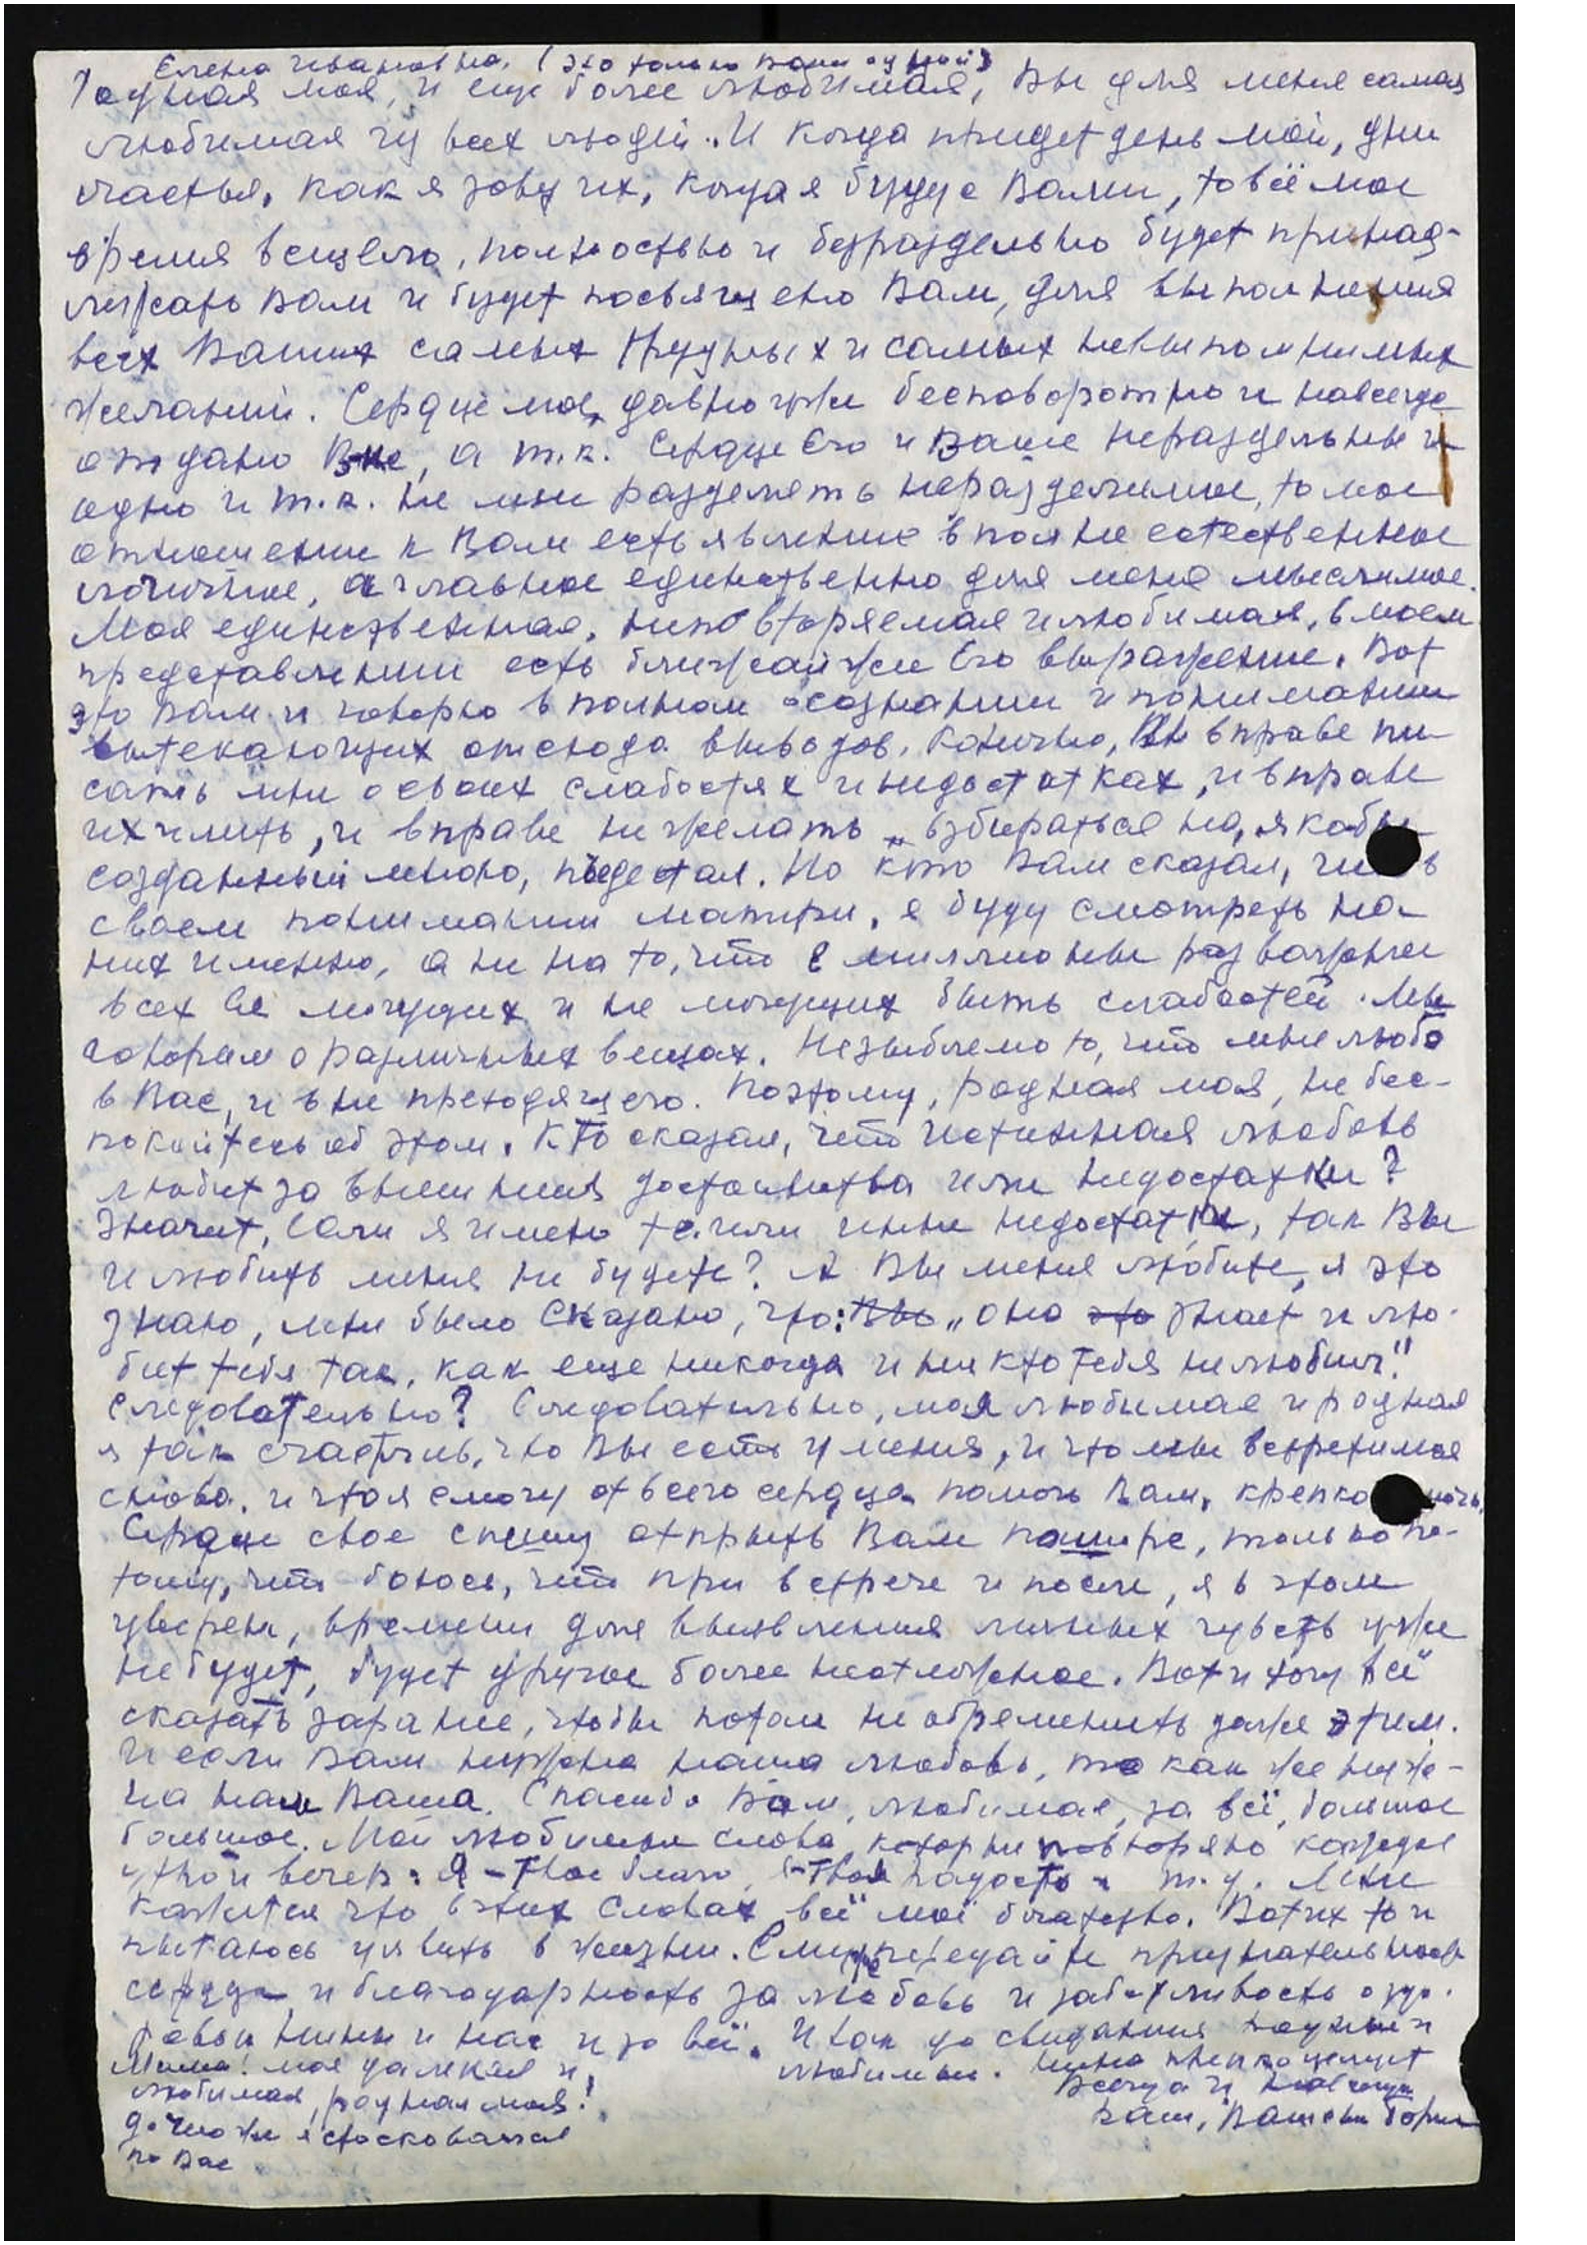 Елена Ивановна. (это только Вам одной)
Родная моя, и еще более любимая, Вы для меня самая
любимая из всех людей. И когда придет день мой, дни
счастья, как я зову их, когда я буду с Вами, то всё мое
время всецело, полностью и безраздельно будет принад-
лежать Вам и будет посвящено Вам, для выполнения
всех Ваших самых трудных и самых невыполнимых
желаний. Сердце мое, давно уже бесповоротно и навсегда
отдано а т.к. Сердце Его и Ваше нераздельны и
одно и т.к. не мне разделять неразделимое, то мое
отношение к Вам есть явление вполне естественное
логичное, а главное единственно для меня мыслимое.
Моя единственная, неповторяемая и любимая, в моем
представлении есть ближайшее Его выражение. Вот
это Вам и говорю в полном осознании и понимании
вытекающих отсюда выводов. Конечно, Вы вправе пи-
сать мне о своих слабостях и недостатках, и вправе
их иметь, и вправе не желать „взбираться на, якобы
созданный мною, пьедестал. Но кто Вам сказал, что в
своем понимании матери, я буду смотреть на
них именно, а не на то, что в миллионы раз важнее
всех Ее могущих и не могущих быть слабостей. Мы
говорим о различных вещах. Незыблемо то, что мне любо
в Вас, и вне преходящего. Поэтому, родная моя, не бес-
покойтесь об этом. Кто сказал, что истинная любовь
любит за внешния достоинства или недостатки?
Значит, если я имею те или иные недостатки, так Вы
и любить меня не будете? А Вы меня любите, я это
знаю, мне было сказано, что: Вы „она это знает и лю-
бит тебя так, как еще никогда и никто тебя не любил".
Следовательно? Следовательно, моя любимая и родная
я так счастлив, что Вы есть у меня, и что мы встретимся
снова, и что я смогу от всего сердца помочь Вам, крепко помочь.
Сердце свое спешу открыть Вам пошире, только по-
тому, что боюсь, что при встрече и после, я в этом
уверен, времени для выявления личных чувств уже
не будет, будет другое более неотложное. Вот и хочу всё
сказать заранее, чтобы потом не обременить даже этим.
И если Вам нужна наша любовь, то как же нуж-
на нам Ваша. Спасибо Вам, любимая, за всё, большое
большое. Мои любимые слова, которые повторяю каждое
утро и вечер: Я – Твое благо, Я – Твоя радость и т.д. Мне
кажется что в этих словах всё мое богатство. Вот их то и
пытаюсь явить в жизни. Ему же передайте признательность
сердца и благодарность за любовь и заботливость о здо-
ровьи Нины и нас и за всё. Итак до свидания родные и
любимые. Нина крепко целует
Всегда и навсегда
Ваш, Ваш сын Борис
Мама! моя далекая и,
любимая, родная моя!
до чего же я стосковался
по Вас